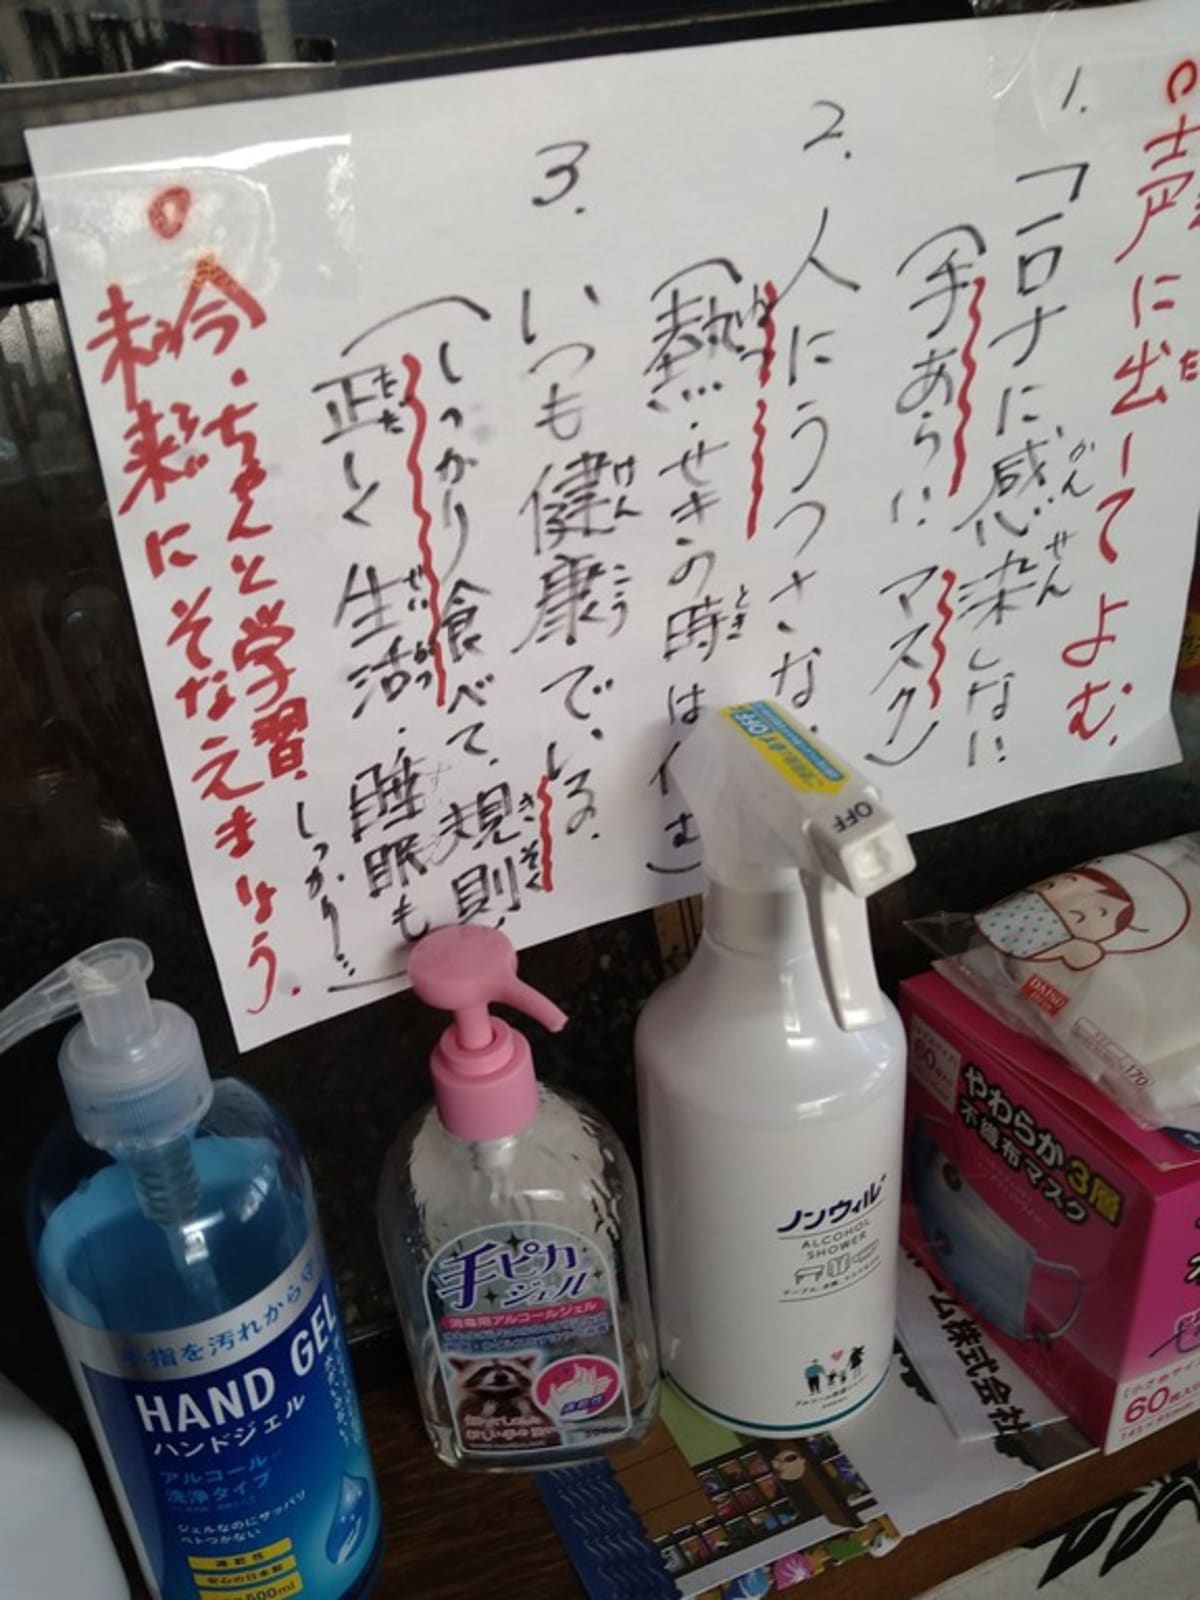 ○声に出してよむ。
1.「コロナに感染しない
(手あらい、マスク)
2.人にうつさない
(熱・せきの時は休む)
3.いつも健康でいる。
(しっかり食べて、規則
正しく生活・睡眠も
しっかり…)
○今・ちゃんと学習、
未来にそなえましょう。
手指を汚れから守
HAND GEL
ハンドジェル
アルコール
洗浄タイプ
ジェルなのにサッパリ
ベトつかない
速乾性
安心の日本製
500ml
手ピカ
ジェル
消毒用アルコールジェル
速乾性
OFF
OFF
ノンウィル
ALCOHOL
SHOWER
DAISO
やわらか3層
不織布マスク
60
60
株式会社